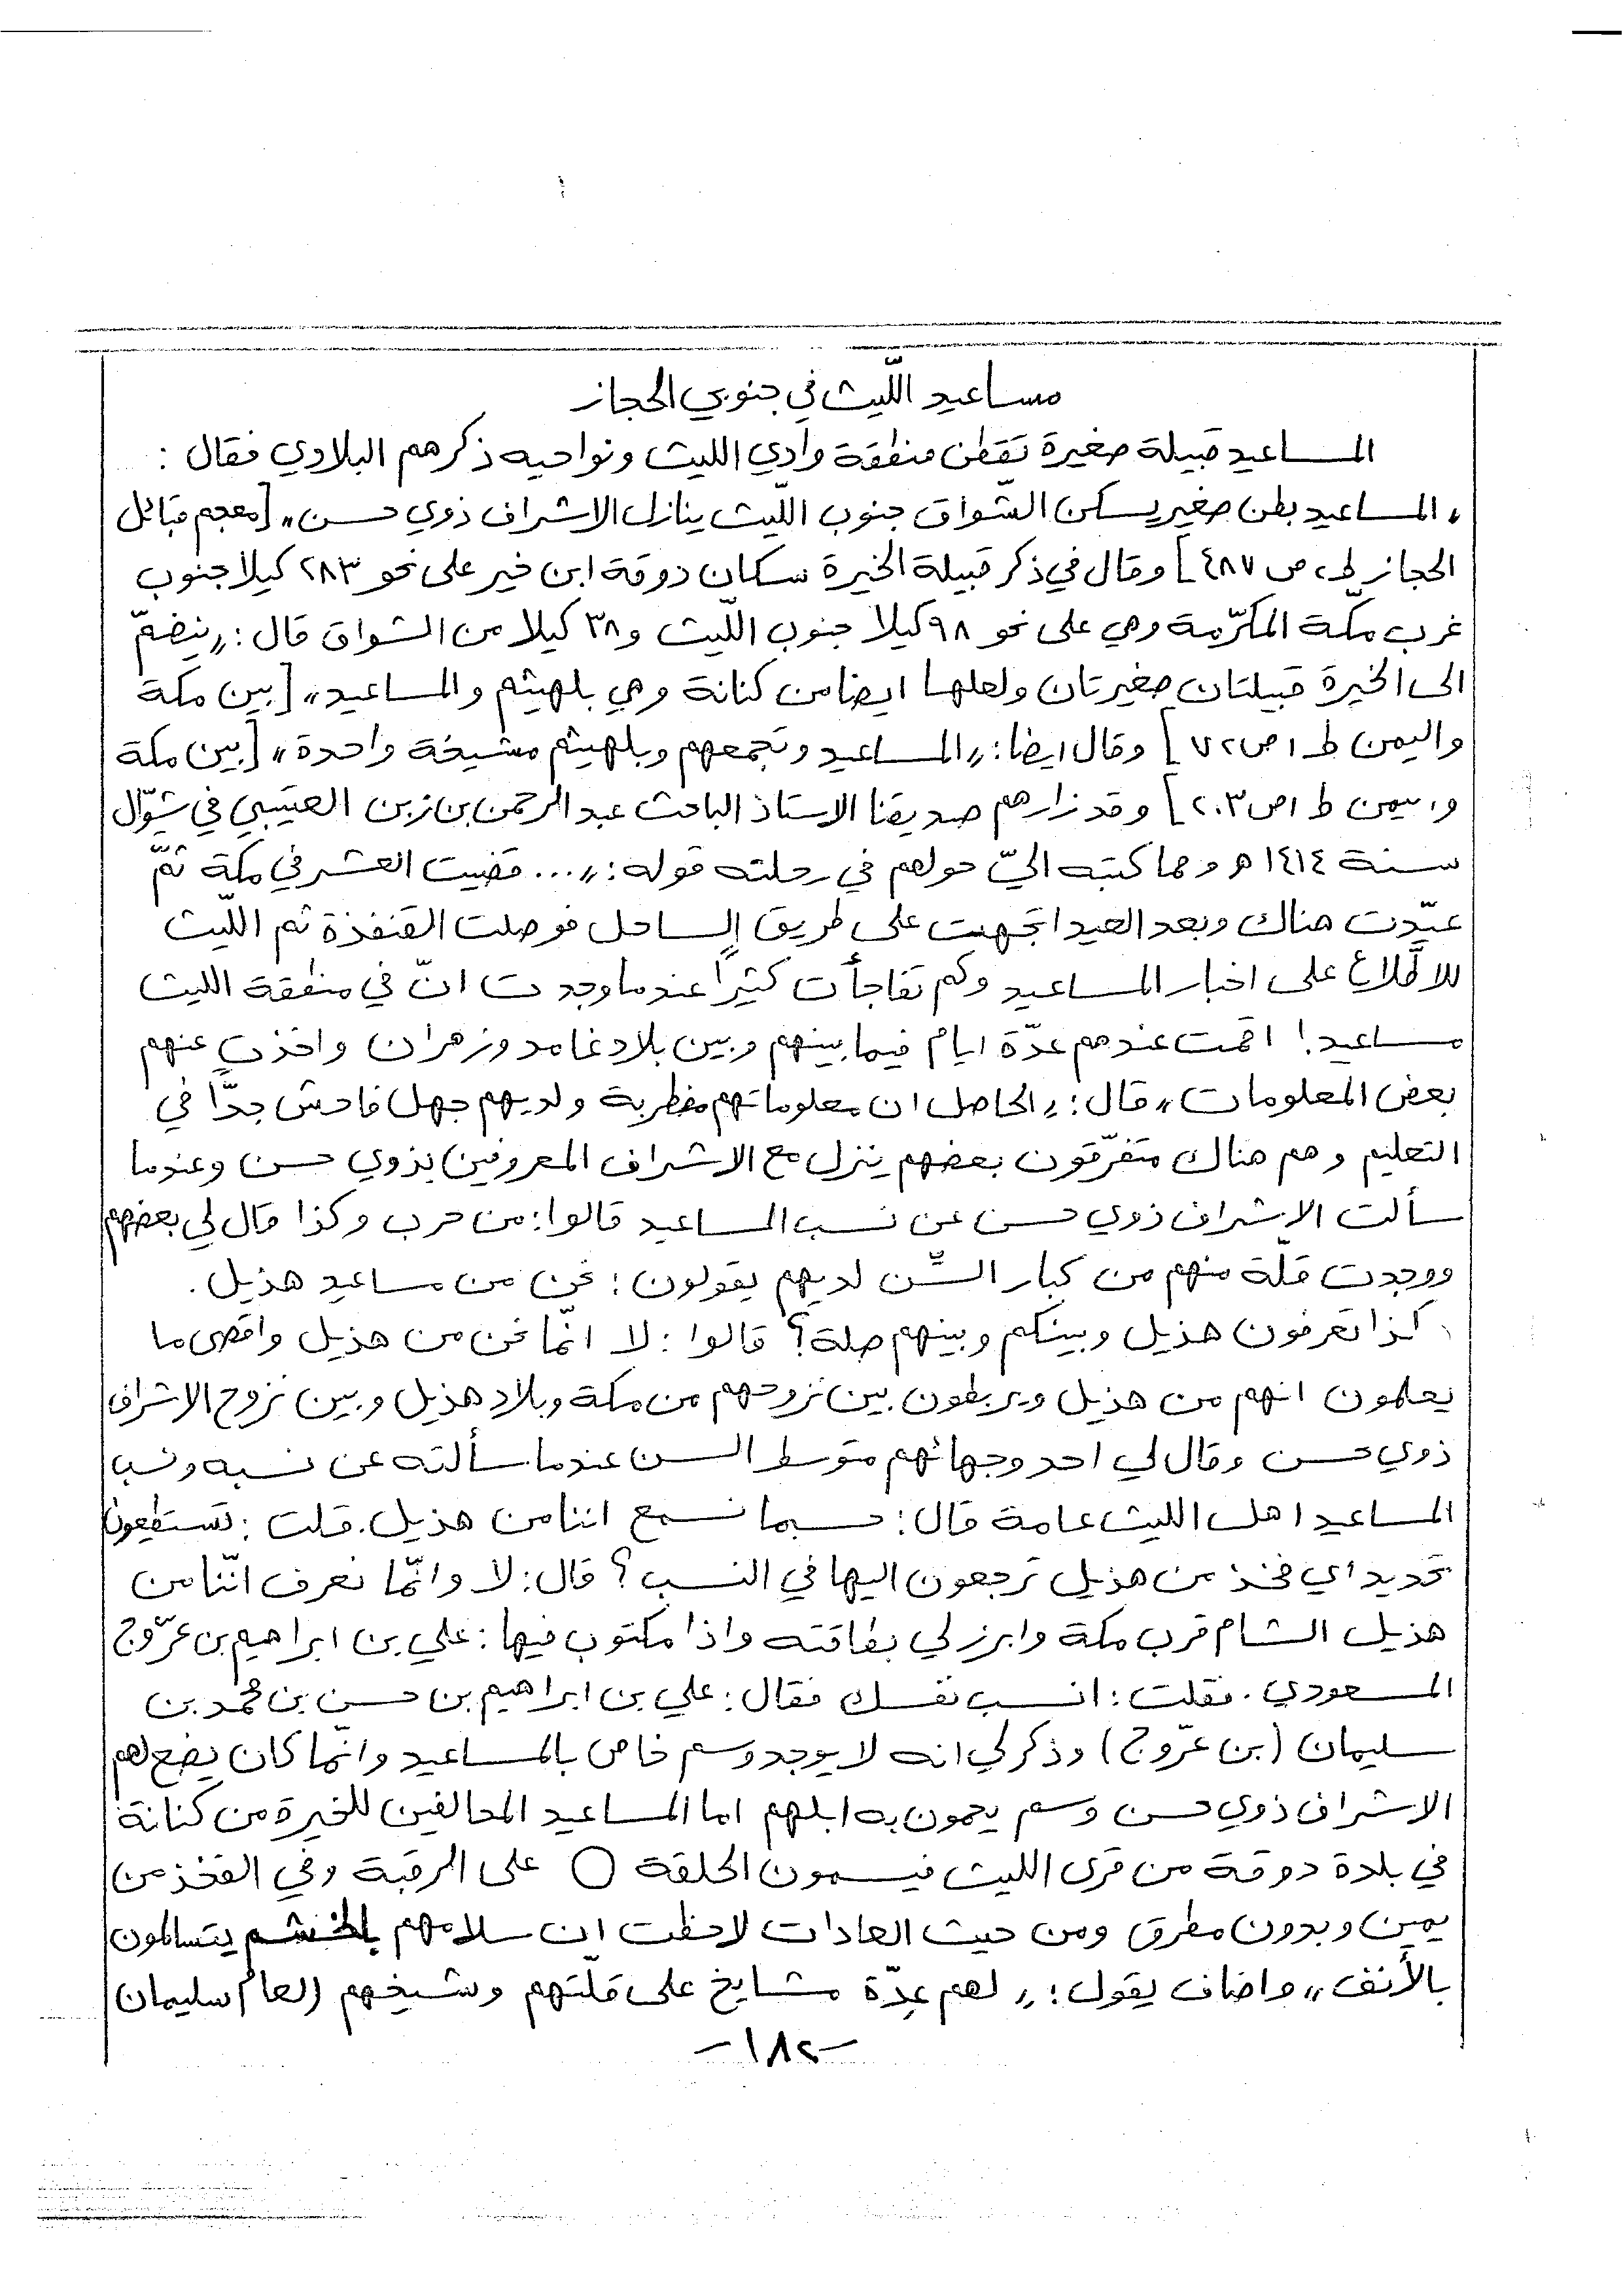 مساعيد اللّيث في جنوبي الحجاز
المساعيد قبيلة صغيرة تقطن منطقة وادي الليث ونواحيه ذكرهم البلادي فقال :
« المساعيد بطن صغير يسكن الشواق جنوب اللّيث ينازل الاشراف ذوي حسن » [معجم قبائل
الحجاز ط٢ ص ٤٨٧] وقال في ذكر قبيلة الخيرة سكان دوقة ابن خير على نحو ٢٨٣ كيلا جنوب
غرب مكّة المكرّمة وهي على نحو ٩٨ كيلا جنوب اللّيث و٣٨ كيلا من الشواق قال : « ينضمّ
الى الخيرة قبيلتان صغيرتان ولعلها ايضا من كنانة وهي بلهيثم والمساعيد » [بين مكة
واليمن ط ١ ص ٧٢] وقال ايضا : « المساعيد وتجمعهم وبلهيثم مشيخة واحدة » [بين مكة
واليمن ط ١ ص ٢٠٣] وقد زارهم صديقنا الاستاذ الباحث عبد الرحمن بن زبن العتيبي في شوّال
سنة ١٤١٤ هـ ومما كتبه اليّ حولهم في رحلته قوله : « ... قضيت العشر في مكة ثمّ
عيّدت هناك وبعد العيد اتجهت على طريق الساحل فوصلت القنفذة ثم اللّيث
للاطّلاع على اخبار المساعيد وكم تفاجأت كثيراً عندما وجدت انّ في منطقة الليث
مساعيد ! اقمت عندهم عدّة ايام فيما بينهم وبين بلاد غامد وزهران واخذت عنهم
بعض المعلومات » قال : « الحاصل ان معلوماتهم مضطربة ولديهم جهل فاحش جدّاً في
التعليم وهم هناك متفرّقون بعضهم ينزل مع الاشراف المعروفين بذوي حسن وعندما
سألت الاشراف ذوي حسن عن نسب المساعيد قالوا : من حرب وكذا قال لي بعضهم
ووجدت قلّة منهم من كبار السّن لديهم يقولون : نحن من مساعيد هذيل .
كذا تعرفون هذيل وبينكم وبينهم صلة ؟ قالوا : لا انّما نحن من هذيل واقصى ما
يعلمون انهم من هذيل ويربطون بين نزوحهم من مكة وبلاد هذيل وبين نزوح الاشراف
ذوي حسن وقال لي احد وجهائهم متوسط السن عندما سألته عن نسبه ونسب
المساعيد اهل الليث عامة قال : حسبما نسمع اننا من هذيل . قلت : تستطيعون
تحديد اي فخذ من هذيل ترجعون اليها في النسب ؟ قال : لا وانّما نعرف انّنا من
هذيل الشام قرب مكة وابرز لي بطاقته واذا مكتوب فيها : علي بن ابراهيم بن عرّوج
المسعودي . فقلت : انسب نفسك فقال : علي بن ابراهيم بن حسن بن محمد بن
سليمان (بن عرّوج) وذكر لي انه لا يوجد وسم خاص بالمساعيد وانّما كان يضع لهم
الاشراف ذوي حسن وسم يحمون به ابلهم اما المساعيد المحالفين للخيرة من كنانة
في بلدة دوقة من قرى الليث فيسمون الحلقة O على الرقبة وفي الفخذ من
يمين وبدون مطرق ومن حيث العادات لاحظت ان سلامهم بالخشم يتسالمون
بالأنف » واضاف يقول : « لهم عدّة مشايخ على قلّتهم وشيخهم (العام سليمان
-١٨٢-